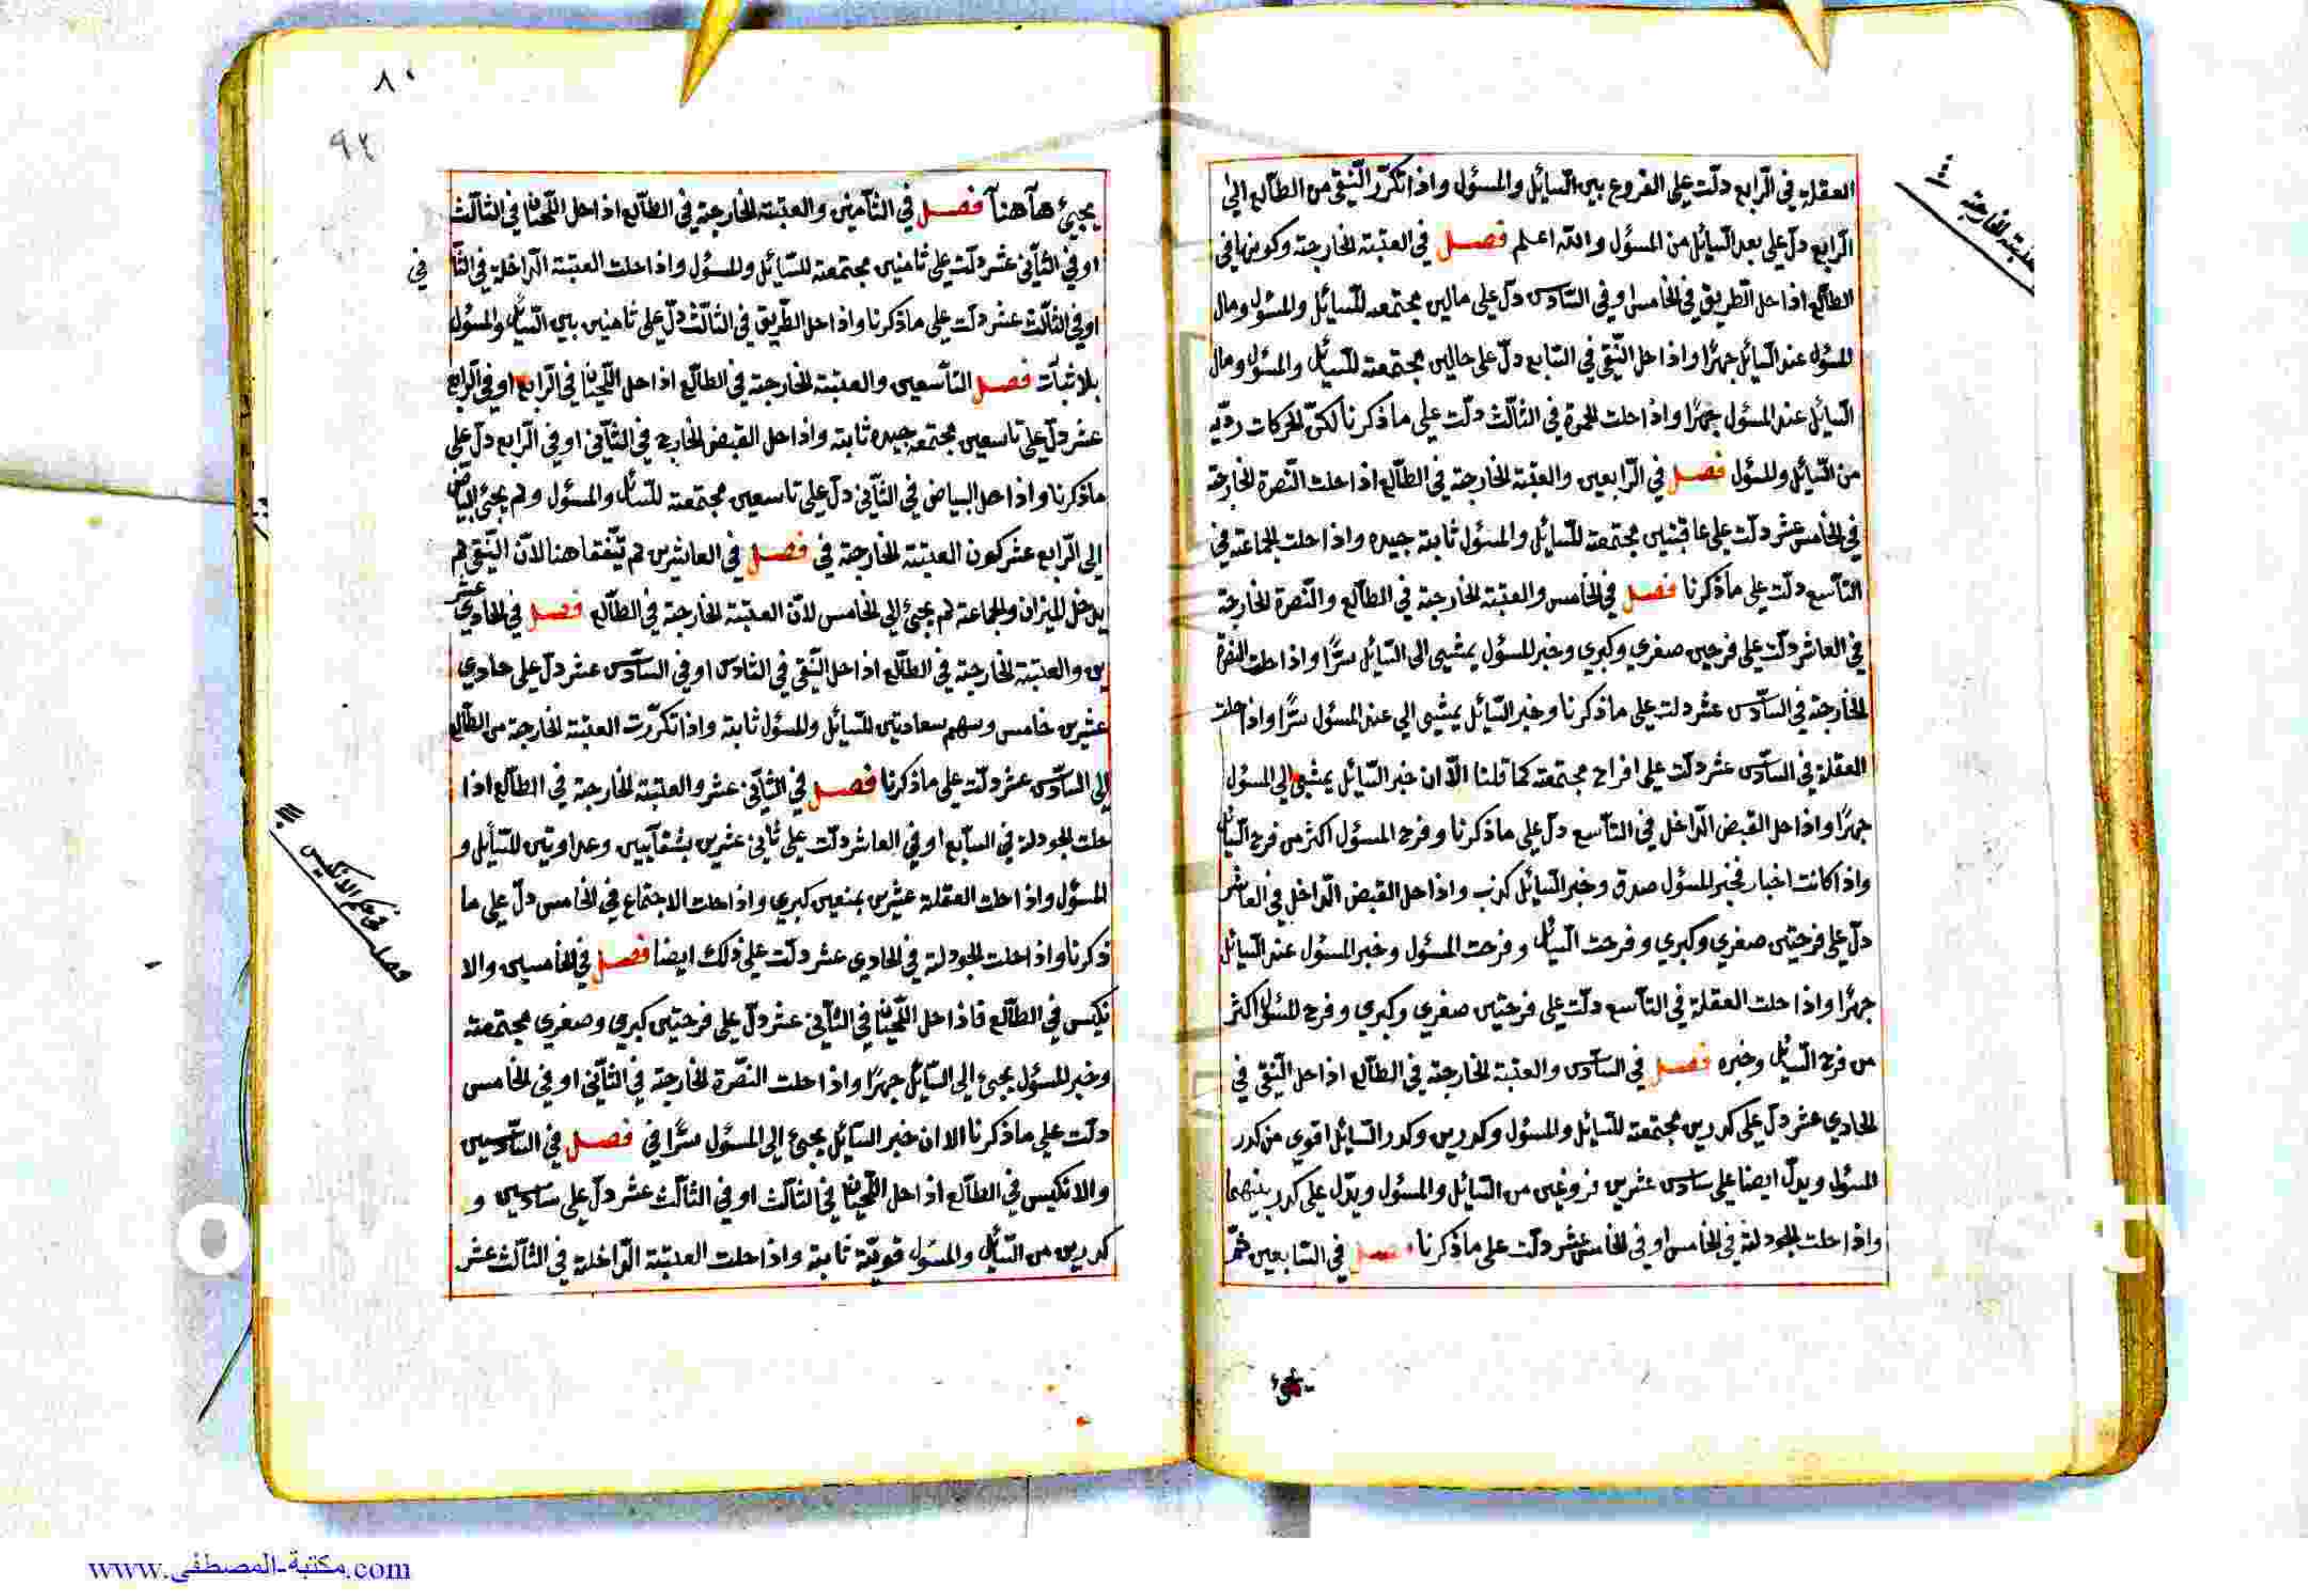 العقلة في الرابع دلت على الفروع بين السائل والمسؤل واذا تكرر النقي من الطالع الي
الرابع دل على بعد السائل من المسؤل والله اعلم فصل في العتبة الخارجة وكونها في
الطالع اذا حل الطريق في الخامس او في السادس دل على مالين مجتمعه للسائل والمسؤل ومال
المسؤل عند السائل جهرًا واذا حل النقي في السابع دل على حالين مجتمعة للسائل والمسؤل ومال
السائل عند المسؤل جهرًا واذا حلت الحمرة في الثالث دلت على ما ذكرنا لكن الحركات رديه
من السائل والمسؤل فصل في الرابعين والعتبة الخارجة في الطالع اذا حلت النصرة الخارجة
في الخامس عشر دلت على عاقبتين مجتمعة للسائل والمسؤل ثابتة جيده واذا حلت الجماعة في
التاسع دلت على ما ذكرنا فصل في الخامس والعتبة الخارجة في الطالع والنصرة الخارجة
في العاشر دلت على فرحين صغري وكبري وخبر المسؤل يمشي الى السائل سرًا واذا حلت النصرة
الخارجة في السادس عشر دلت على ما ذكرنا وخبر السائل يمشي الي عند المسؤل سرًا واذا حلت
العقلة في السادس عشر دلت على افراح مجتمعة كما قلنا الا ان خبر السائل يمشي الي المسؤل
جهرًا واذا حل القبض الداخل في التاسع دل على ما ذكرنا وفرح المسؤل اكثر من فرح السائل
واذا كانت اخبار فخبر المسؤل صدق وخبر السائل كذب واذا حل القبض الداخل في العاشر
دل على فرحتين صغري وكبري وفرحت السائل وفرحت المسؤل وخبر المسؤل عند السائل
جهرًا واذا حلت العقلة في التاسع دلت على فرحتين صغري وكبري وفرح المسؤل اكثر
من فرح السائل وخبره فصل في السادس والعتبة الخارجة في الطالع اذا حل النقي في
الحادي عشر دل على كدرين مجتمعة للسائل والمسؤل وكدرين وكدر السائل اقوي من كدر
المسؤل ويدل ايضا على سادس عشرين فروغين من السائل والمسؤل ويدل على كدر بينهما
واذا حلت الجودلة في الخامس او في الخامس عشر دلت على ما ذكرنا فصل في السابعين
يجئ
٨٠
٩٢
يجيئ هاهنا فصل في الثامنين والعتبة الخارجة في الطالع اذا حل اللحيان في الثالث
او في الثاني عشر دلت على ثامنين مجتمعة للسائل والمسؤل واذا حلت العتبة الداخلة في الثا في
او في الثالث عشر دلت على ما ذكرنا واذا حل الطريق في الثالث دل على ثامنين بين السائل والمسؤل
بلا ثبات فصل التاسعين والعتبة الخارجة في الطالع اذا حل اللحيان في الرابع او في الرابع
عشر دل على تاسعين مجتمعه جيده ثابته واذا حل القبض الخارج في الثاني او في الرابع دل على
ما ذكرنا واذا حل البياض في الثاني دل على تاسعين مجتمعة للسائل والمسؤل ولم يجئ البياض
الى الرابع عشر كون العتبة الخارجة في فصل في العاشرين لم تتفقا هنا لان النقي لم
يدخل الميزان والجماعة لم يجئ الي الخامس لان العتبة الخارجة في الطالع فصل في الحادي عشر
ين والعتبة الخارجة في الطالع اذا حل النقي في السادس او في السادس عشر دل على حادي
عشرين خامس وسهم سعادتين للسائل والمسؤل ثابتة واذا تكررت العتبة الخارجة من الطالع
الى السادس عشر دلت على ما ذكرنا فصل في الثاني عشر والعتبة الخارجة في الطالع اذا
حلت الجودلة في السابع او في العاشر دلت على ثاني عشرين بشقايين وعداوتين للسائل و
المسؤل واذا حلت العقلة عشرين بمنعين كبري واذا حلت الاجتماع في الخامس دل على ما
ذكرنا واذا حلت الجودلة في الحادي عشر دلت على ذلك ايضا فصل في الخامسين والا
نكيس في الطالع فاذا حل اللحيان في الثاني عشر دل على فرحتين كبري وصغري مجتمعة
وخبر المسؤل يجئ الى السائل جهرًا واذا حلت النصرة الخارجة في الثاني او في الخامس
دلت على ما ذكرنا الا ان خبر السائل يجئ الى المسؤل سرًا في فصل في السادسين
والانكيس في الطالع اذا حل اللحيان في الثالث او في الثالث عشر دل على سادسين و
كدرين من السائل والمسؤل قوية ثابتة واذا حلت العتبة الداخلة في الثالث عشر
فصل في حكم الانكيس
www.مكتبة-المصطفى.com